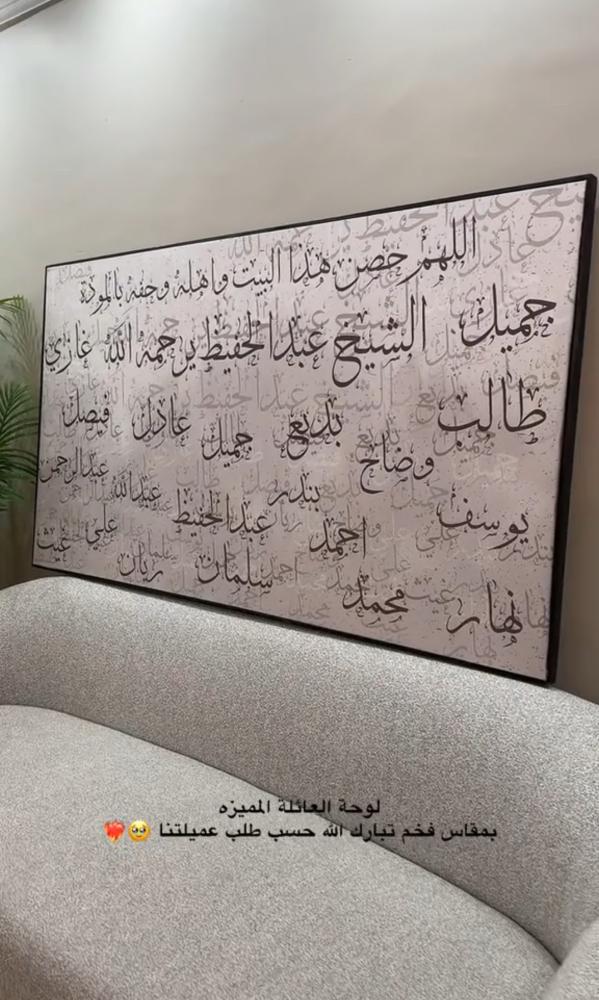 اللهم حصن هذا البيت واهله وحفه بالمودة
جميل الشيخ عبدالحفيظ يرحمه الله غازي
طالب بديع جميل عادل فيصل
وضاح بندر عبدالله عبدالرحمن
يوسف احمد عبدالحفيظ علي غيث
نهار محمد سلمان ريان
لوحة العائلة المميزه
بمقاس فخم تبارك الله حسب طلب عميلتنا 🥹❤️‍🔥